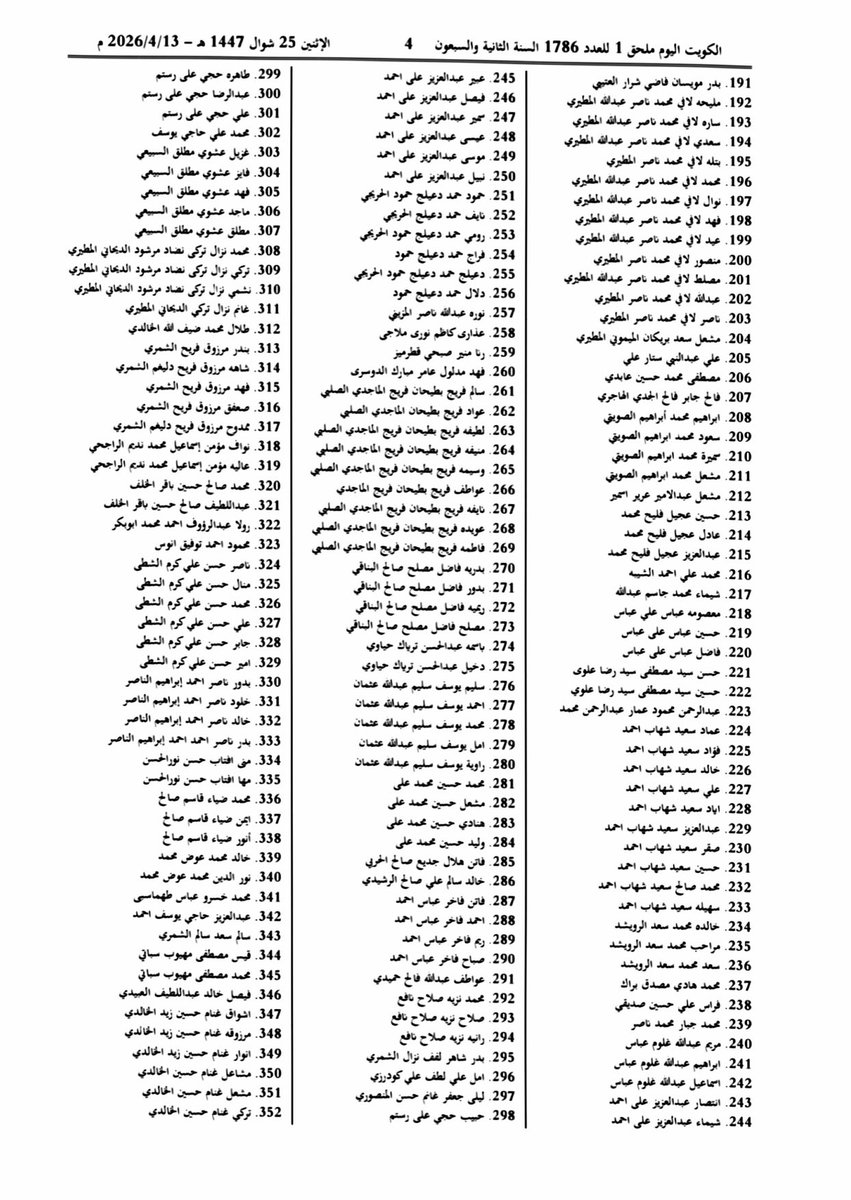 الكويت اليوم ملحق 1 للعدد 1786 السنة الثانية والسبعون
4
الإثنين 25 شوال 1447 هـ – 2026/4/13 م
191. بدر مويسان فاضي شرار العتيبي
192. مليحه لافي محمد ناصر عبدالله المطيري
193. ساره لافي محمد ناصر عبدالله المطيري
194. سعدي لافي محمد ناصر عبدالله المطيري
195. بتله لافي محمد ناصر المطيري
196. محمد لافي محمد ناصر عبدالله المطيري
197. نوال لافي محمد ناصر عبدالله المطيري
198. فهد لافي محمد ناصر عبدالله المطيري
199. عيد لافي محمد ناصر عبدالله المطيري
200. منصور لافي محمد ناصر المطيري
201. مصلط لافي محمد ناصر عبدالله المطيري
202. عبدالله لافي محمد ناصر المطيري
203. ناصر لافي محمد ناصر المطيري
204. مشعل سعد بريكان الميموني المطيري
205. علي عبدالنبي ستار علي
206. مصطفى محمد حسين عابدي
207. فالح جابر فالح الجدي الهاجري
208. ابراهيم محمد أبراهيم الصويتي
209. سعود محمد ابراهيم الصويتي
210. سميرة محمد ابراهيم الصويتي
211. مشعل محمد ابراهيم الصويتي
212. مشعل عبدالامير عرير اسمير
213. حسين عجيل فليح محمد
214. عادل عجيل فليح محمد
215. عبدالعزيز عجيل فليح محمد
216. محمد علي احمد الشيبه
217. شيماء محمد جاسم عبدالله
218. معصومه عباس علي عباس
219. حسين عباس على عباس
220. فاضل عباس على عباس
221. حسن سيد مصطفى سيد رضا علوى
222. حسين سيد مصطفى سيد رضا علوي
223. عبدالرحمن محمود عمار عبدالرحمن محمد
224. عماد سعيد شهاب احمد
225. فؤاد سعيد شهاب احمد
226. خالد سعيد شهاب احمد
227. علي سعيد شهاب احمد
228. اياد سعيد شهاب احمد
229. عبدالعزيز سعيد شهاب احمد
230. صقر سعيد شهاب احمد
231. حسين سعيد شهاب احمد
232. محمد صالح سعيد شهاب احمد
233. سهيله سعيد شهاب احمد
234. خالده محمد سعد الرويشد
235. مراحب محمد سعد الرويشد
236. سعد محمد سعد الرويشد
237. محمد هادي مصدق براك
238. فراس علي حسين صديقي
239. محمد جبار محمد ناصر
240. مريم عبدالله غلوم عباس
241. ابراهيم عبدالله غلوم عباس
242. اسماعيل عبدالله غلوم عباس
243. انتصار عبدالعزيز على احمد
244. شيماء عبدالعزيز على احمد
245. عبير عبدالعزيز على احمد
246. فيصل عبدالعزيز على احمد
247. سمير عبدالعزيز على احمد
248. عيسى عبدالعزيز على احمد
249. موسى عبدالعزيز على احمد
250. نبيل عبدالعزيز على احمد
251. حمود حمد دعيلج حمود الحريجي
252. نايف حمد دعيلج الحريجي
253. رومي حمد دعيلج حمود الحريجي
254. فراج حمد دعيلج حمود
255. دعيلج حمد دعيلج حمود الحريجي
256. دلال حمد دعيلج حمود
257. نوره عبدالله ناصر المزيني
258. عذارى كاظم نورى ملاجى
259. رنا منير صبحي قطرميز
260. فهد مدلول عامر مبارك الدوسرى
261. سالم فريج بطيحان فريج الماجدي الصلبي
262. عواد فريج بطيحان الماجدي الصلبي
263. لطيفه فريج بطيحان فريج الماجدي الصلبي
264. منيفه فريج بطيحان فريج الماجدي الصلبي
265. وسيمه فريج بطيحان فريج الماجدي الصلبي
266. عواطف فريج بطيحان فريج الماجدي
267. نايفه فريج بطيحان فريج الماجدي الصلبي
268. عويده فريج بطيحان فريج الماجدي الصلبي
269. فاطمه فريج بطيحان فريج الماجدي الصلبي
270. بدريه فاضل مصلح صالح البناقي
271. بدور فاضل مصلح صالح البناقي
272. ريميه فاضل مصلح صالح البناقي
273. مصلح فاضل مصلح صالح البناقي
274. باسمه عبدالحسن ترياك حياوي
275. دخيل عبدالحسن ترياك حياوي
276. سليم يوسف سليم عبدالله عثمان
277. احمد يوسف سليم عبدالله عثمان
278. محمد يوسف سليم عبدالله عثمان
279. امل يوسف سليم عبدالله عثمان
280. راوية يوسف سليم عبدالله عثمان
281. محمد حسين محمد على
282. مشعل حسين محمد على
283. هنادي حسين محمد على
284. وليد حسين محمد على
285. فاتن هلال جديع صالح الحربي
286. خالد سالم علي صالح الرشيدي
287. فاتن فاخر عباس احمد
288. احمد فاخر عباس احمد
289. ريم فاخر عباس احمد
290. صباح فاخر عباس احمد
291. عواطف عبدالله فالح حميدي
292. محمد نزيه صلاح نافع
293. صلاح نزيه صلاح نافع
294. رانيه نزيه صلاح نافع
295. بدر شاهر لفف نزال الشمري
296. امل علي لطف علي كودرزي
297. ليلى جعفر غانم حسن المنصوري
298. حبيب حجي على رستم
299. طاهره حجي على رستم
300. عبدالرضا حجي على رستم
301. علي حجي على رستم
302. محمد علي حاجي يوسف
303. غزيل عشوي مطلق السبيعي
304. فايز عشوي مطلق السبيعي
305. فهد عشوي مطلق السبيعي
306. ماجد عشوي مطلق السبيعي
307. مطلق عشوي مطلق السبيعي
308. محمد نزال تركى نضاد مرشود الديحاني المطيري
309. تركي نزال تركى نضاد مرشود الديحاني المطيري
310. نشمي نزال تركى نضاد مرشود الديحاني المطيري
311. غانم نزال تركي الديحاني المطيري
312. طلال محمد ضيف الله الخالدي
313. بندر مرزوق فريح الشمري
314. شاهه مرزوق فريح دليغم الشمري
315. فهد مرزوق فريح الشمري
316. صعفق مرزوق فريح الشمري
317. ممدوح مرزوق فريح دليغم الشمري
318. نواف مؤمن إسماعيل محمد نديم الراجحي
319. عاليه مؤمن إسماعيل محمد نديم الراجحي
320. محمد صالح حسين باقر الخلف
321. عبداللطيف صالح حسين باقر الخلف
322. رولا عبدالرؤوف احمد محمد ابوبكر
323. محمود احمد توفيق انوس
324. ناصر حسن علي كرم الشطى
325. منال حسن علي كرم الشطى
326. محمد حسن علي كرم الشطى
327. علي حسن علي كرم الشطى
328. جابر حسن علي كرم الشطى
329. امير حسن علي كرم الشطى
330. بدور ناصر احمد إبراهيم الناصر
331. خلود ناصر احمد إبراهيم الناصر
332. خالد ناصر احمد إبراهيم الناصر
333. بدر ناصر احمد احمد إبراهيم الناصر
334. منى افتاب حسن نورالحسن
335. مها افتاب حسن نورالحسن
336. محمد ضياء قاسم صالح
337. ايمن ضياء قاسم صالح
338. أنور ضياء قاسم صالح
339. خالد محمد عوض محمد
340. نور الدين محمد عوض محمد
341. محمد خسرو عباس طهماسبى
342. عبدالعزيز حاجي يوسف احمد
343. سالم سعد سالم الشمري
344. قيس مصطفى مهيوب سباتي
345. محمد مصطفى مهيوب سباتي
346. فيصل خالد عبداللطيف العبيدي
347. اشواق غنام حسين زيد الخالدي
348. مرزوقه غنام حسين زيد الخالدي
349. انوار غنام حسين زيد الخالدي
350. مشاعل غنام حسين الخالدي
351. مشعل غنام حسين الخالدي
352. تركي غنام حسين الخالدي